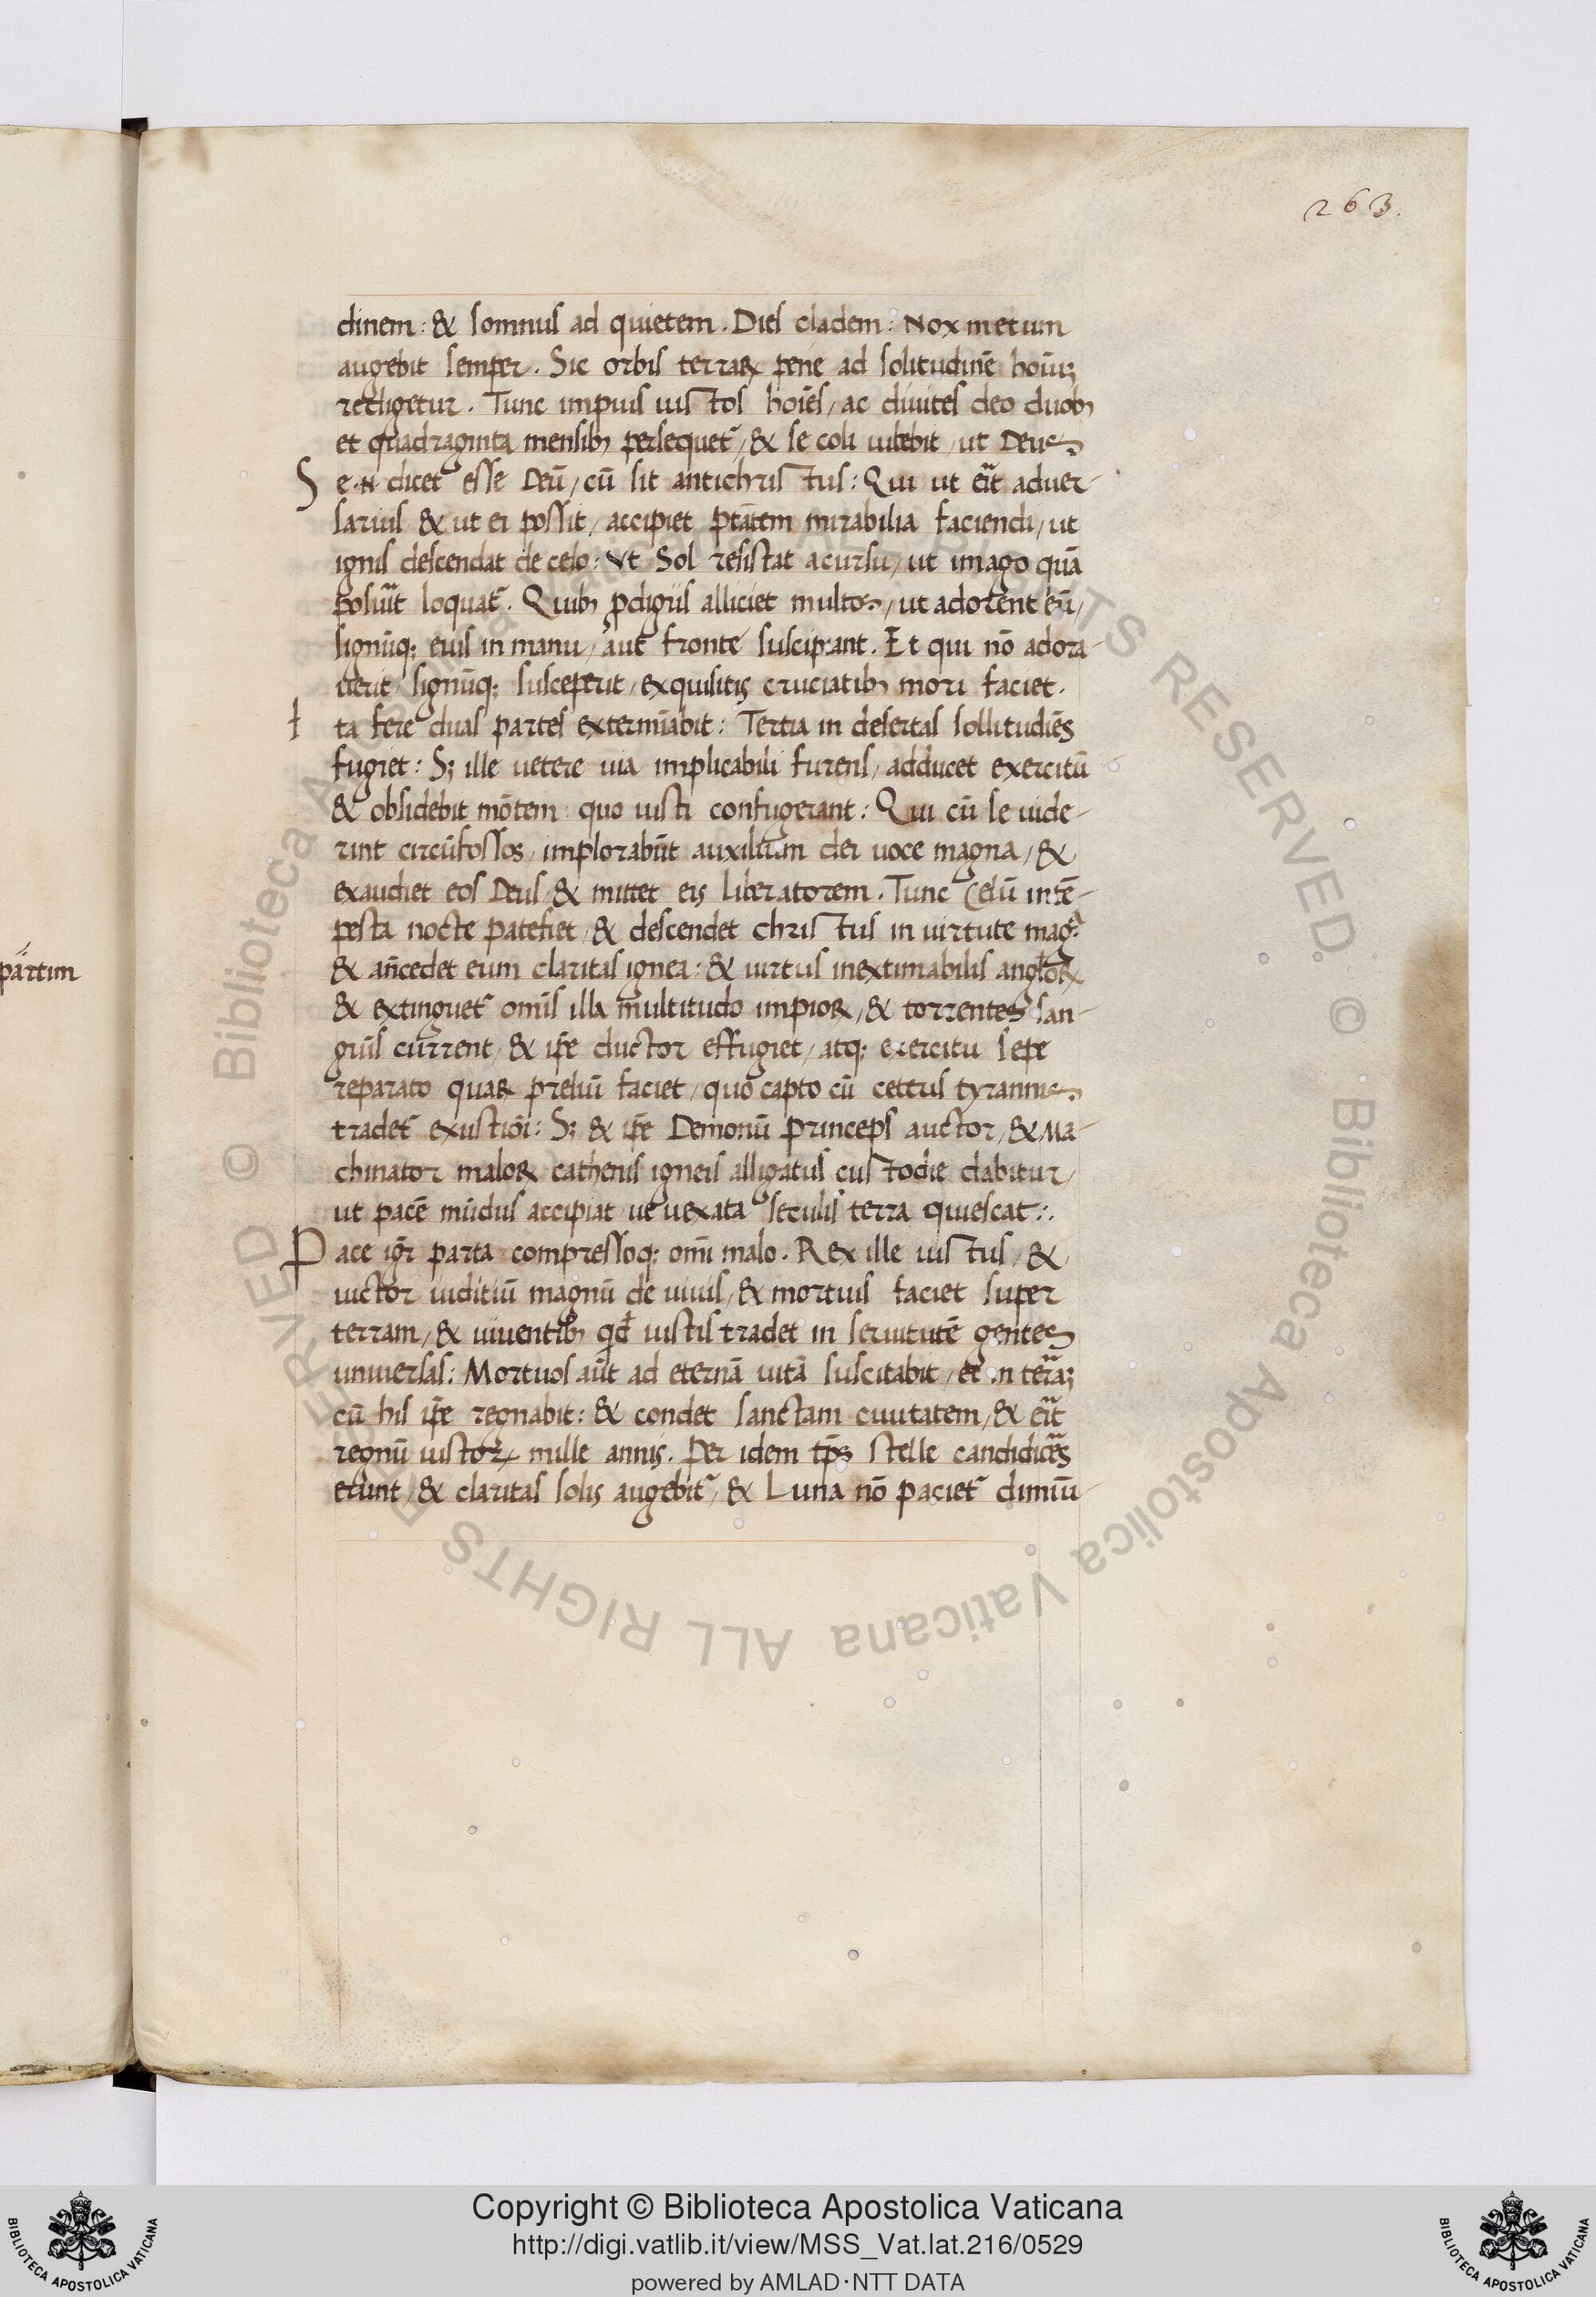 263.
dinem: & somnus ad quietem. Dies cladem: Nox metum
augebit semper. Sic orbis terraꝝ pene ad solitudinē hoīuꝫ
redigetur. Tunc impius iustos hoīēs, ac diuites deo duobꝫ
et quadraginta mensibꝫ persequet᷑, & se coli iubebit, ut Deus
Se .N. dicet esse Deū, cū sit antichristus: Qui ut eīt aduer-
sarius & ut ei possit, accipiet ptātem mirabilia faciendi, ut
ignis descendat de celo: Vt Sol resistat a cursu, ut imago quā
posuīt loquat᷑. Quibꝫ ꝓdigiis alliciet multos, ut adorent eū,
signūqꝫ eius in manu, aut fronte suscipiant. Et qui nō adora-
uerit signūqꝫ susceperit, exquisitis cruciatibꝫ mori faciet.
Ita fere duas partes extermīabit: Tertia in desertas sollitudīes
fugiet: Sꝫ ille uetere uia implicabili furens, adducet exercitū
& obsidebit mōtem quo iusti confugerant: Qui cū se uide-
rint circūfossos, implorabūt auxilium dei uoce magna, &
exaudiet eos Deus, & mittet eis liberatorem. Tunc Celū intē-
pesta nocte patefiet, & descendet christus in uirtute mag.ᵃ
& an̄cedet eum claritas ignea: & uirtus inextimabilis angl̄oꝝ
& extinguet᷑ omīs illa multitudo impioꝝ, & torrentes san-
guīs current, & ip̄e ductor effugiet, atqꝫ exercitu sepe
reparato quaꝝ preliū faciet, quo capto cū ceteris tyrannis
tradet᷑ exustiōi: Sꝫ & ip̄e Demonū princeps auctor, & Ma-
chinator maloꝝ cathenis igneis alligatus custodie dabitur,
ut pacē mūdus accipiat ut uexata seculis terra quiescat:.
Pace igr̄ parta compressoqꝫ om̄i malo. Rex ille iustus, &
uictor iuditiū magnū de uiuis, & mortuis faciet super
terram, & uiuentibꝫ qd̄ iustis tradet in seruitutē gentes
uniuersas: Mortuos aūt ad eternā uitā suscitabit, et in terraꝫ
cū his ip̄e regnabit: & condet sanctam ciuitatem, & eīt
regnū iustoꝝ mille annis. Per idem tp̄s stelle candidiōes
erunt, & claritas solis augebit᷑, & Luna nō paciet᷑ dimīu-
partim
BIBLIOTECA APOSTOLICA VATICANA
Copyright © Biblioteca Apostolica Vaticana
http://digi.vatlib.it/view/MSS_Vat.lat.216/0529
powered by AMLAD·NTT DATA
BIBLIOTECA APOSTOLICA VATICANA
© Biblioteca Apostolica Vaticana ALL RIGHTS RESERVED © Biblioteca Apostolica Vaticana ALL RIGHTS RESERVED